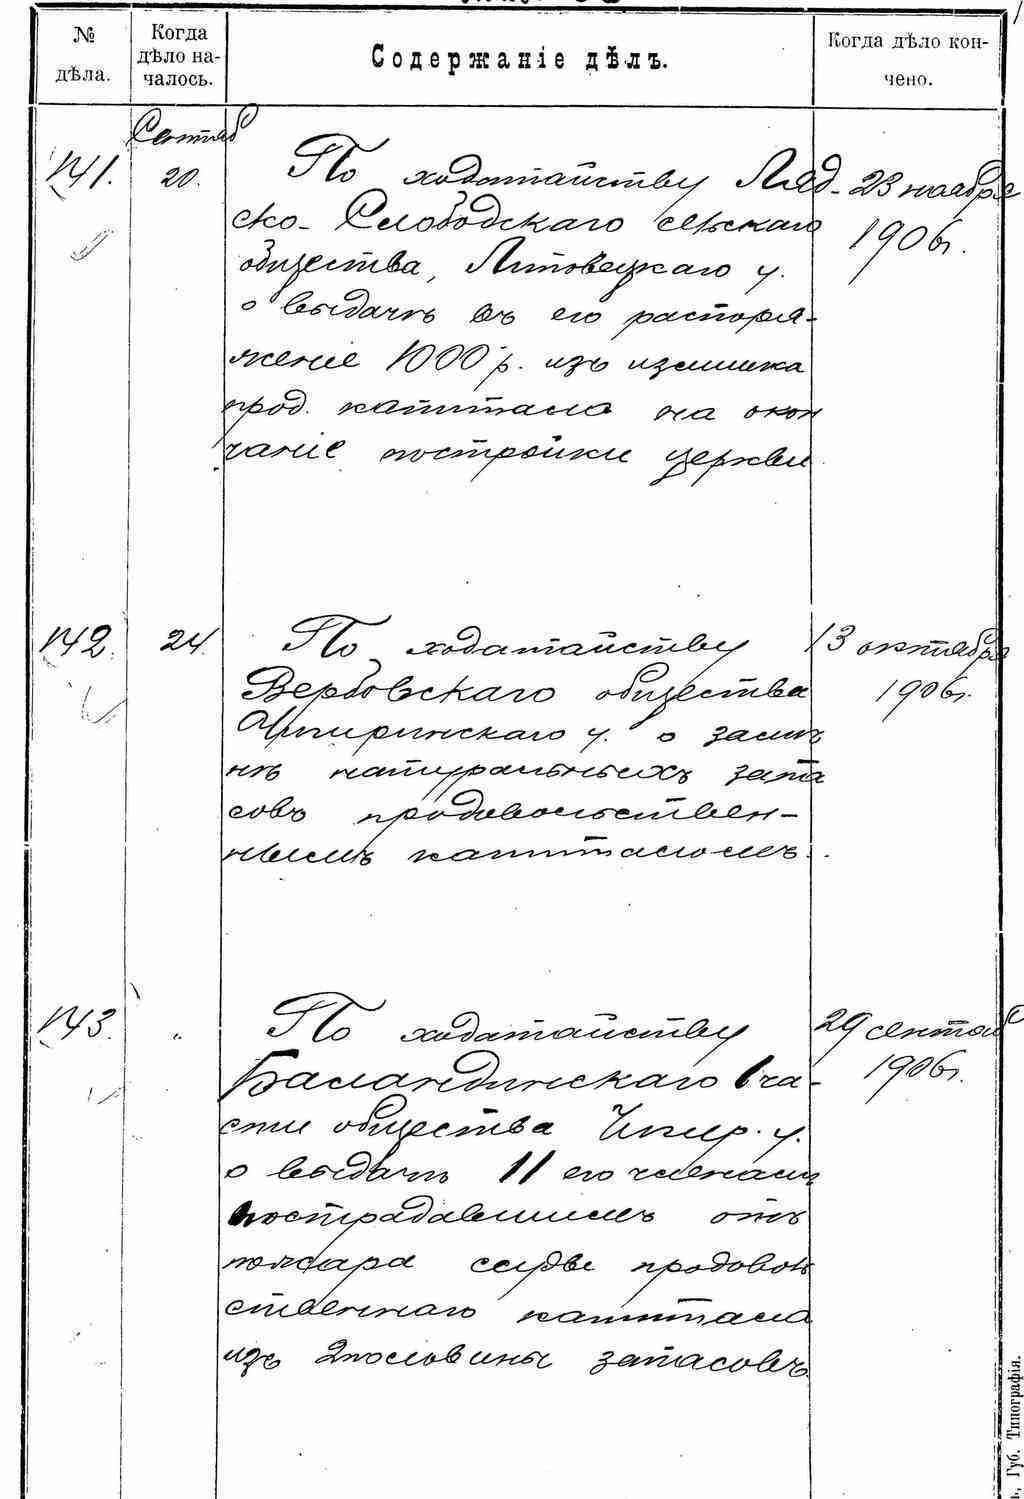 № дѣла.
Когда дѣло на-
чалось.
Содержаніе дѣлъ.
Когда дѣло кон-
чено.
Сентяб
141.
20.
По ходатайству Ляд-
ско-Слободскаго сельскаго
общества, Липовецкаго у.
о выдачѣ въ его распоря-
женіе 1000 р. изъ излишка
прод. капитала на окон
чаніе постройки церкви
23 ноября
1906г.
142.
24.
По ходатайству
Вербовскаго общества
Чигиринскаго у. о замѣ
нѣ натуральныхъ запа
совъ продовольствен-
нымъ капиталомъ.
13 октября
1906г.
143.
"
По ходатайству
Баландинскаго 1 ча-
сти общества Чигир. у.
о выдачѣ 11 его членамъ
пострадавшимъ отъ
пожара ссуды продоволь
ственнаго капитала
изъ 2 половины запасовъ
29 сентяб
1906г.
ъ, Губ. Типографія.